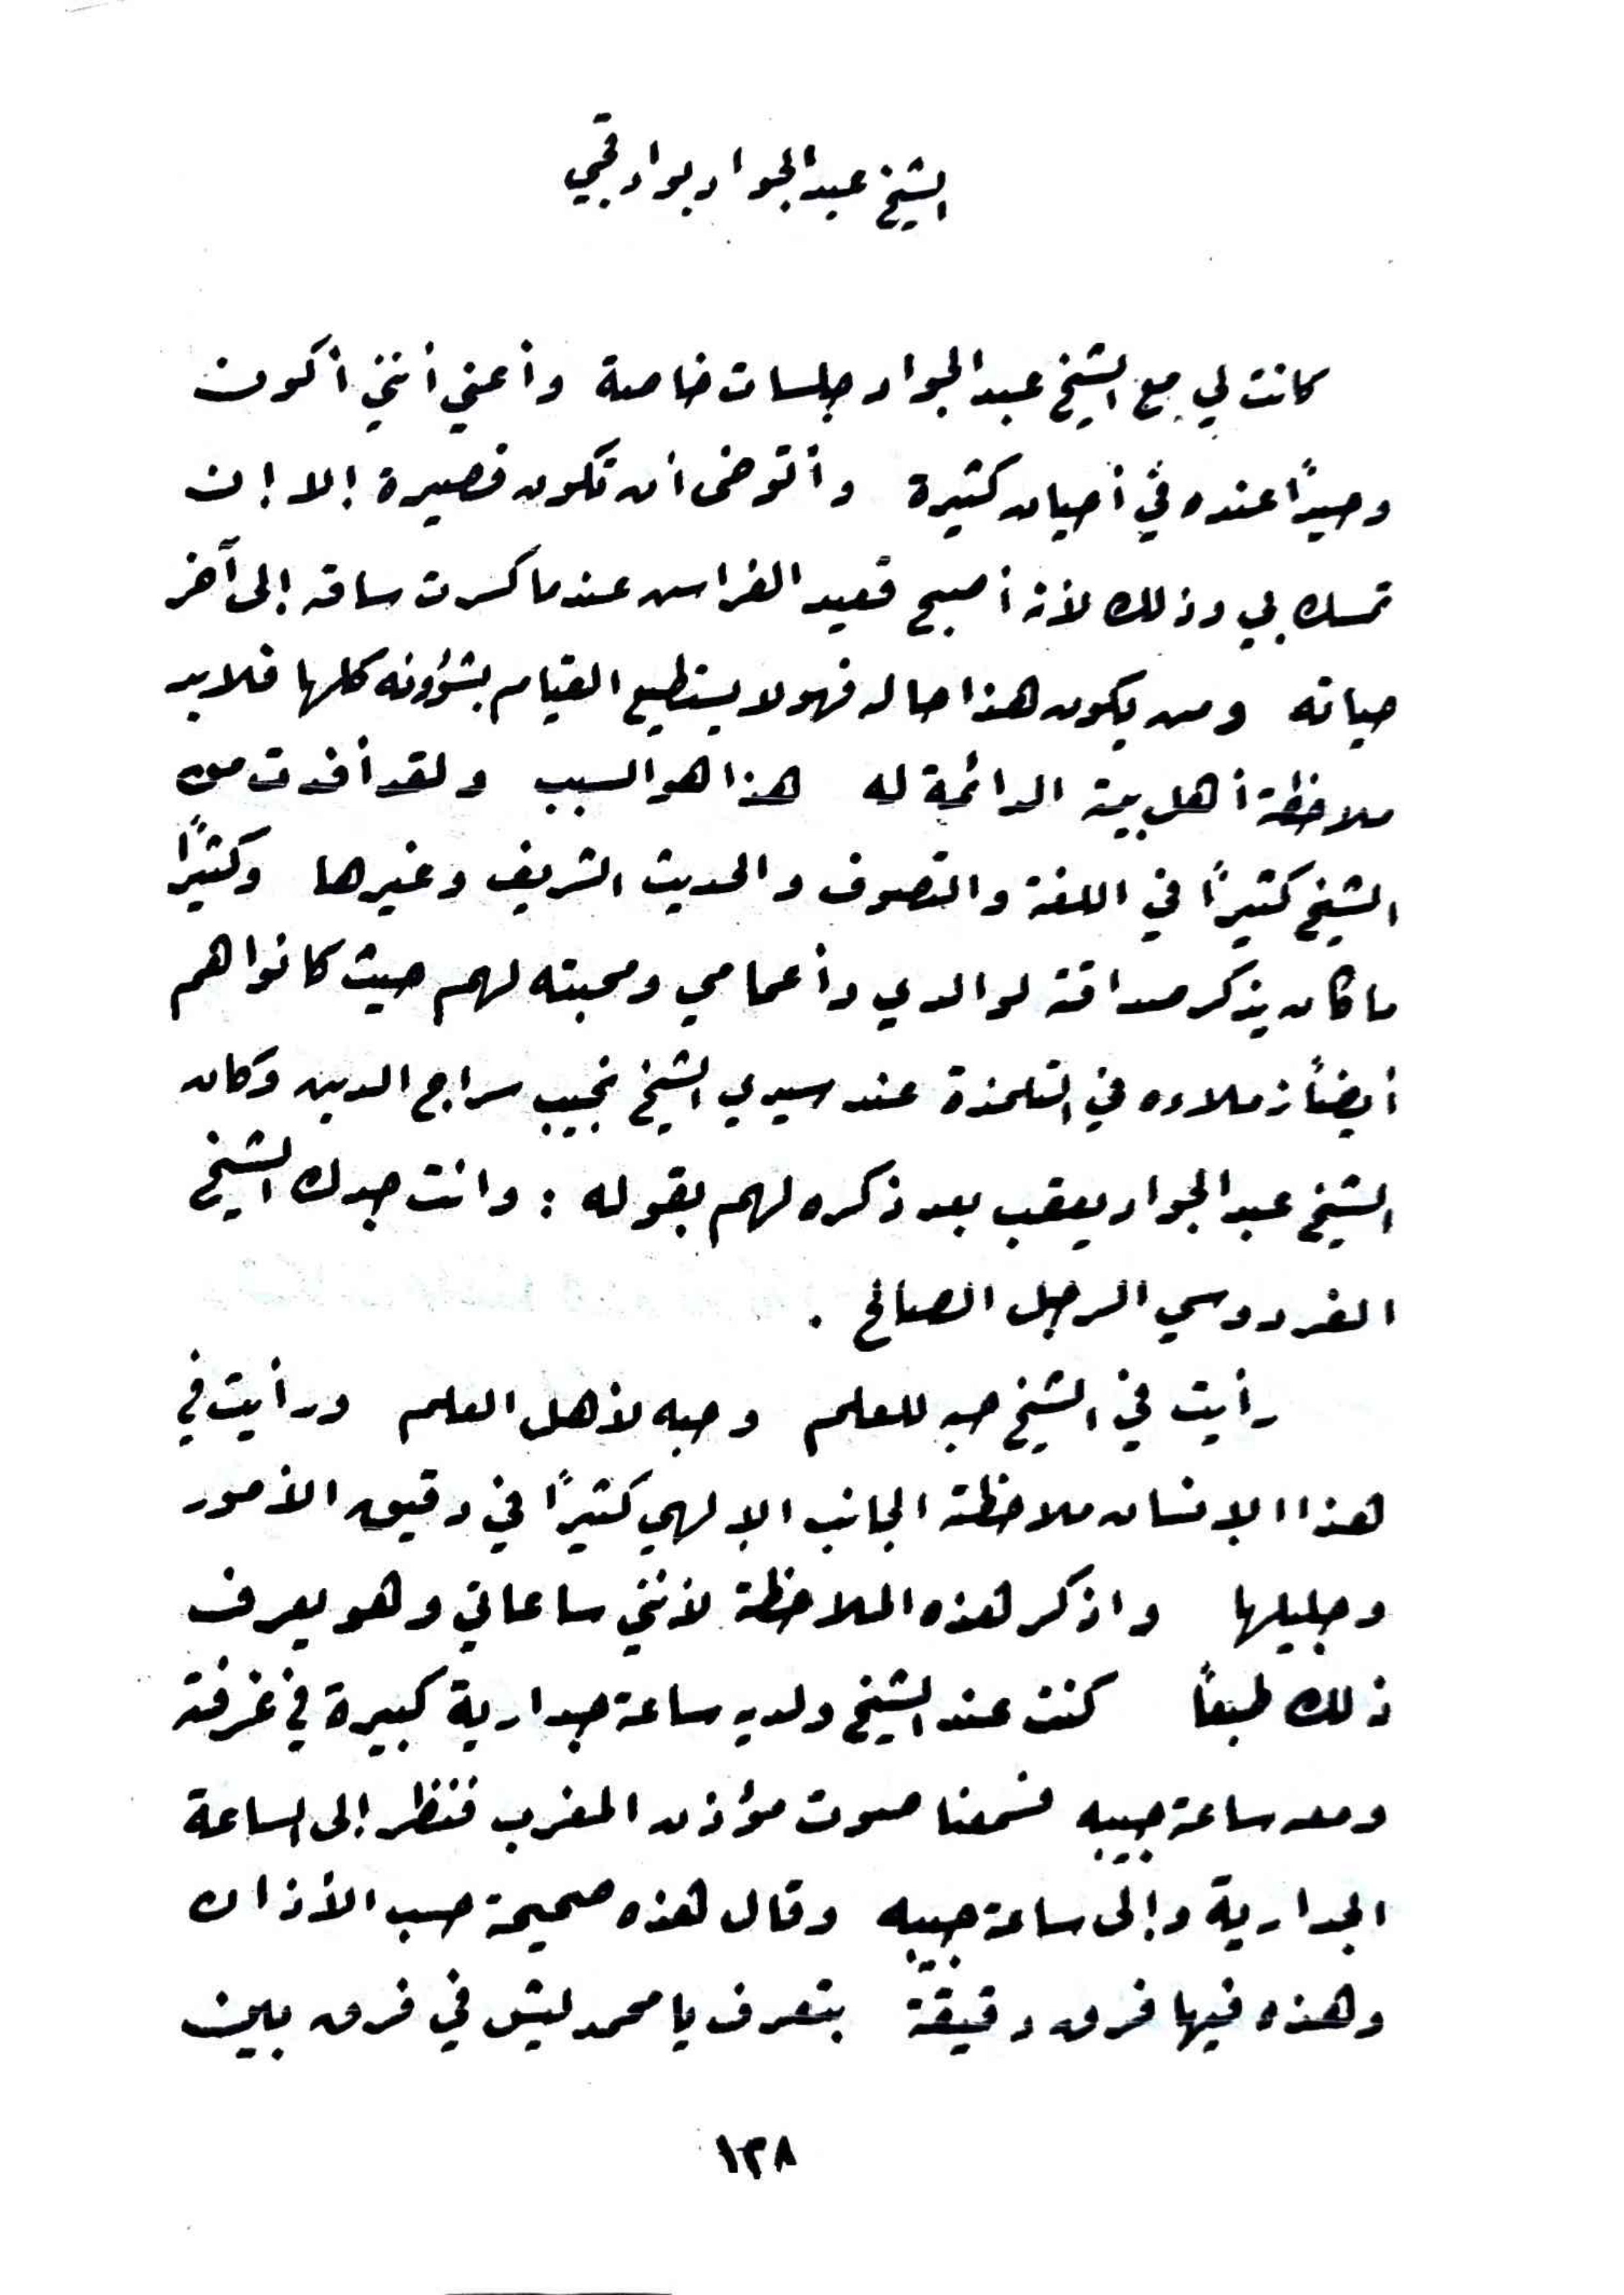 الشيخ عبد الجواد بوادقجي
كانت لي مع الشيخ عبد الجواد جلسات خاصة وأعني أنني أكون
وحيدًا عنده في أحيان كثيرة وأتوخى أن تكون قصيرة إلا إن
تمسك بي وذلك لأنه أصبح قعيد الفراش عندما كسرت ساقه إلى آخر
حياته ومن يكون هذا حاله فهو لا يستطيع القيام بشؤونه كلها فلابد
ملاحظة أهل بيته الدائمة له هذا هو السبب ولقد أفدت من
الشيخ كثيرًا في اللغة والتصوف والحديث الشريف وغيرها وكثيرًا
ما كان يذكر صداقته لوالدي وأعمامي ومحبته لهم حيث كانوا هم
أيضاً زملاءه في التلمذة عند سيدي الشيخ نجيب سراج الدين وكان
الشيخ عبد الجواد يعقب بعد ذكره لهم بقوله : وانت جدك الشيخ
الفردوسي الرجل الصالح .
رأيت في الشيخ حبه للعلم وحبه لأهل العلم ورأيت في
هذا الإنسان ملاحظة الجانب الإلهي كثيرًا في دقيق الأمور
وجليلها واذكر هذه الملاحظة لأنني ساعاتي وهو يعرف
ذلك طبعاً كنت عند الشيخ ولديه ساعة جدارية كبيرة في غرفته
ومعه ساعة جيبه فسمعنا صوت مؤذن المغرب فنظر إلى الساعة
الجدارية وإلى ساعة جيبه وقال هذه صحيحة حسب الأذان
وهذه فيها فرق دقيقة بتعرف يا محمد ليش في فرق بين
١٣٨